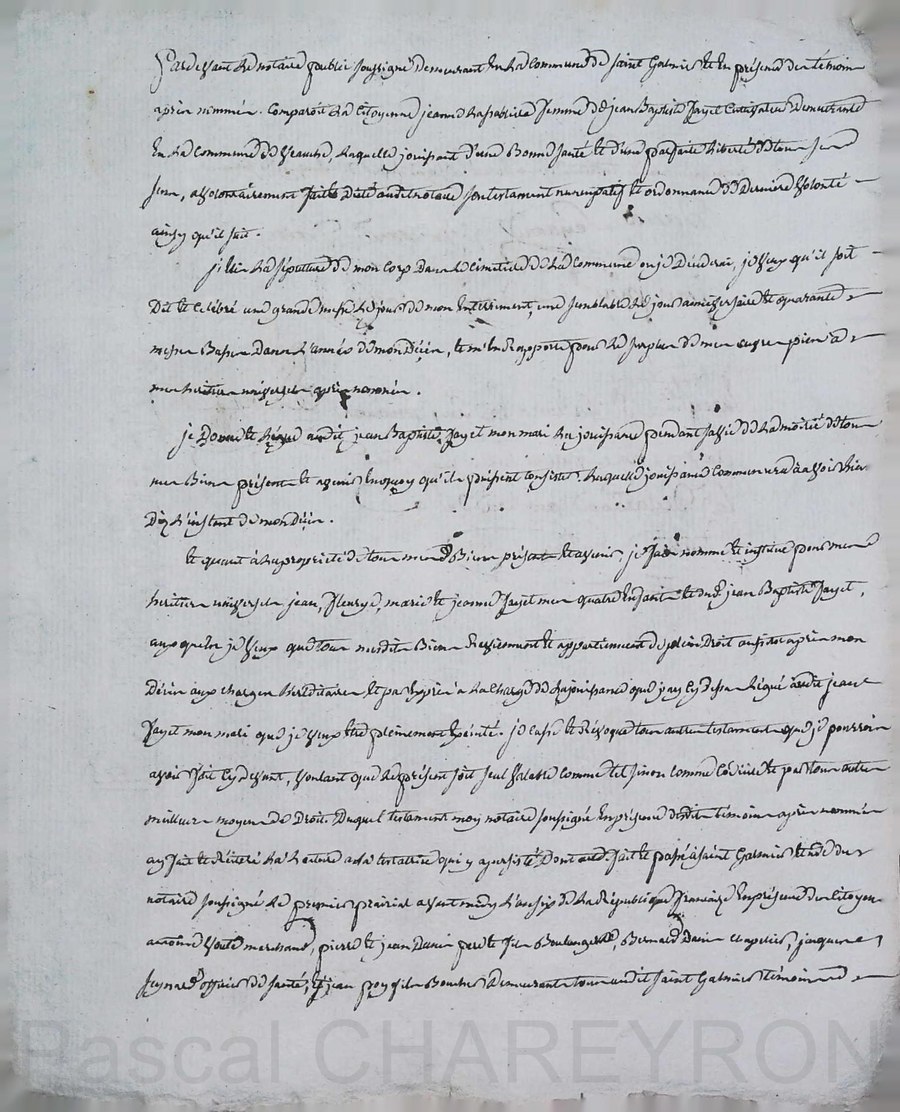 Pardevant le notaire public soussigné demeurant en la commune de saint Galmier et en présence des témoins
après nommés. Comparoit la citoyenne jeanne femme de jean Baptiste Jayet cultivateur demeurante
en la commune de Veauche, laquelle jouissant d'une bonne santé et d'une parfaite liberté de tous ses
sens, a volontairement fait et dicté audit notaire son testament nuncupatif et ordonnance de derniere volonté
ainsy qu'il suit.
j'élis la sépulture de mon corps dans le cimetiere de la commune ou je décéderai, je veux qu'il soit
dit et celébré une grande messe le jour de mon enterrement, une semblable le jour anniversaire et quarante
messes basses dans l'année de mon décès, et m'en rapporte pour le surplus de mes euvres pies à
mes heritiers universels après nommés.
je donne et lègue audit jean Baptiste Jayet mon mari la jouissance pendant sa vie de la moitié de tous
mes biens présents et avenir en quoy qu'ils puissent consister. laquelle jouissance commencera à avoir lieu
dès l'instant de mon décès.
et quant à la propriété de tous mes dits biens présents et avenir, je nomme et institue pour mes
heritiers universels jean, fleury, marie et jeanne Jayet mes quatre enfants et dudit jean Baptiste Jayet,
auxquels je veux que tous mesdits biens reviennent et appartiennent de plein droit aussitot après mon
décès aux charges hereditaires et par exprès à la charge de la jouissance que j'ay cy dessus légué audit jean
Jayet mon mari que je veux etre pleinement exécuté. je casse et révoque tous autres testaments que je pourrois
avoir fait cy devant, voulant que le présent soit seul valable comme tel sinon comme codicille et par tous autres
meilleurs moyens de droit. Duquel testament moy notaire soussigné en présence desdits témoins après nommés
ay fait et réitéré la lecture à la testatrice qui y a persisté. Dont acte. fait et passé à saint Galmier étude du
notaire soussigné le premier prairial avant midy l'an six de la République française en présence des citoyens
antoine marchand, pierre et jean Danis pere et fils boulangers, Bernard Danis chapelier, jacques
officier de santé, et jean fils boucher demeurants tous audit saint Galmier témoins
Pascal CHAREYRON